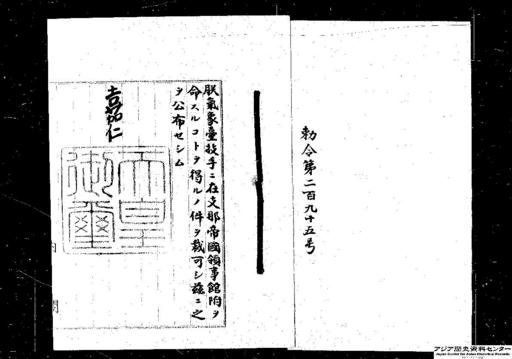 勅令第二百九十五号
朕氣象臺技手ニ在支那帝國領事館附ヲ
命スルコトヲ得ルノ件ヲ裁可シ茲ニ之
ヲ公布セシム
嘉仁
天皇
御璽
アジア歴史資料センター
Japan Center for Asian Historical Records